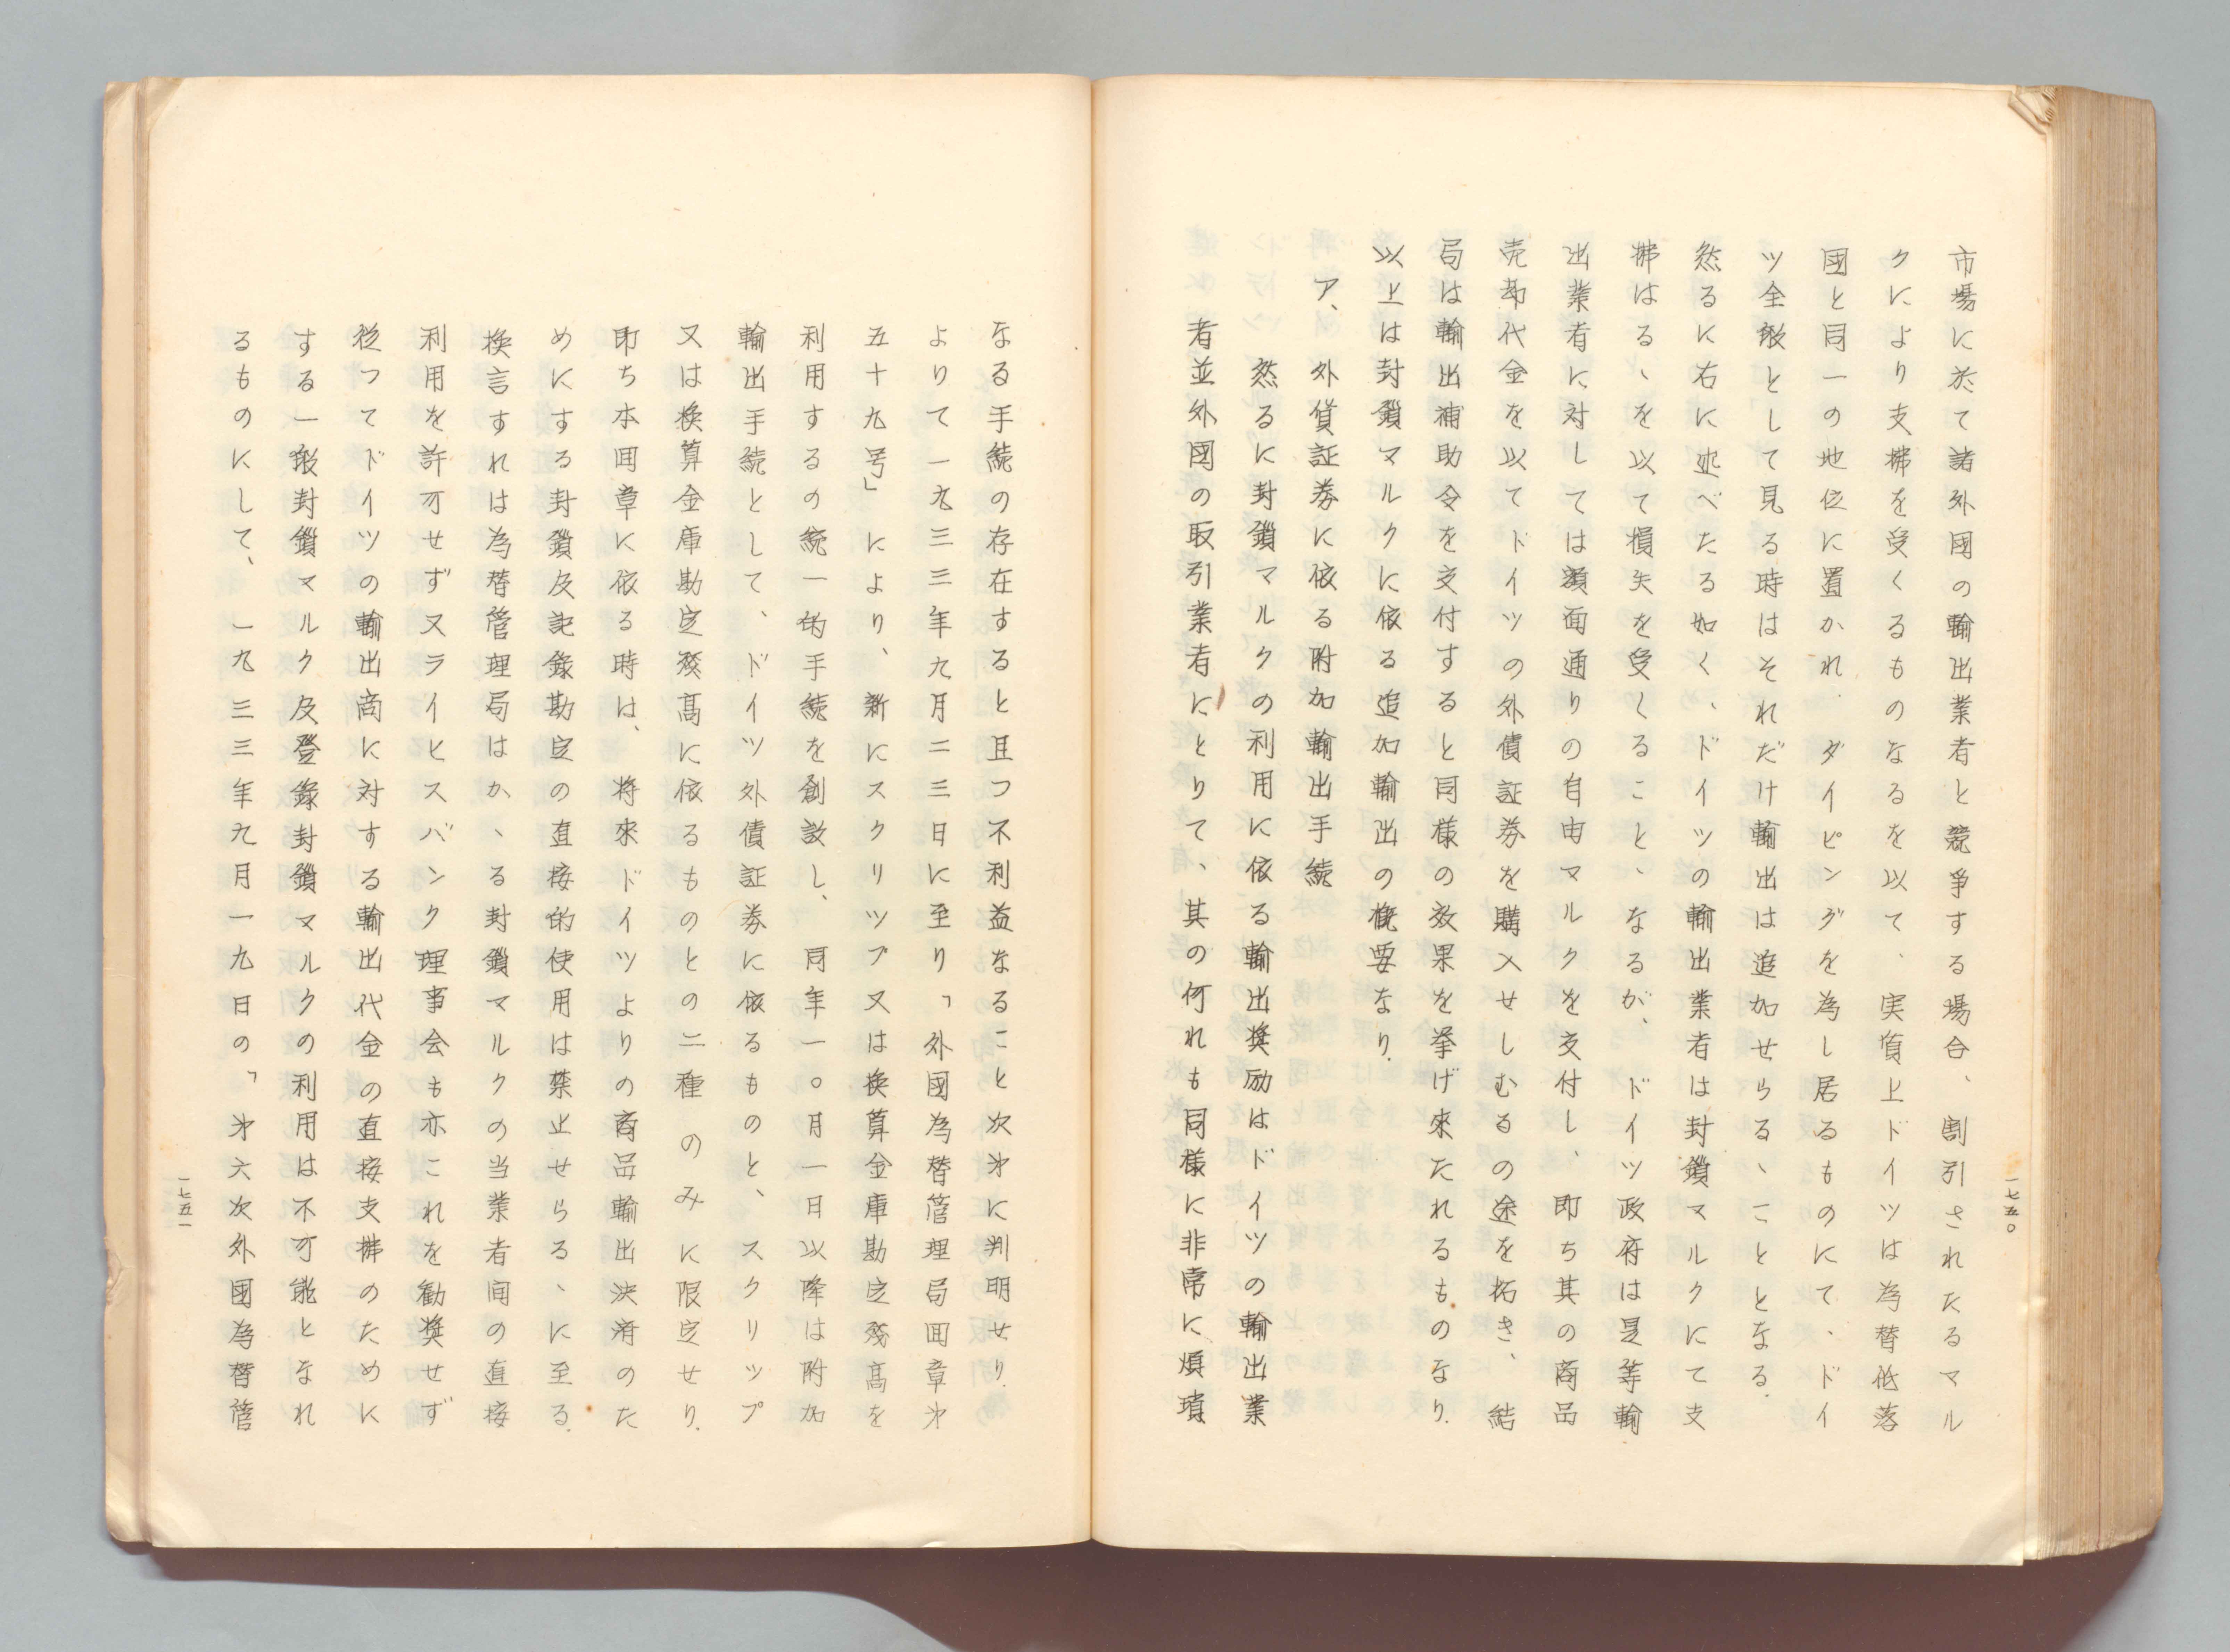 市場に於て諸外國の輸出業者と競爭する場合、割引されたるマル
クにより支拂を受くるものなるを以て、実質上ドイツは為替低落
國と同一の地位に置かれ、ダイピングを為し居るものにて、ドイ
ツ全般として見る時はそれだけ輸出は追加せらるゝこととなる。
然るに右に述べたる如く、ドイツの輸出業者は封鎖マルクにて支
拂はるゝを以て損失を受くることゝなるが、ドイツ政府は是等輸
出業者に対しては額面通りの自由マルクを交付し、即ち其の商品
売却代金を以てドイツの外債証券を購入せしむるの途を拓き、結
局は輸出補助令を交付すると同様の效果を挙げ來たれるものなり。
以上は封鎖マルクに依る追加輸出の概要なり。
ア、外貨証券に依る附加輸出手続
然るに封鎖マルクの利用に依る輸出奨励はドイツの輸出業
者並外國の取引業者にとりて、其の何れも同様に非常に煩瑣
一七五〇
なる手続の存在すると且つ不利益なること次才に判明せり。
よりて一九三三年九月二三日に至り「外國為替管理局囬章才
五十九号」により、新にスクリツプ又は換算金庫勘定残高を
利用するの統一的手続を創設し、同年一〇月一日以降は附加
輸出手続として、ドイツ外債証券に依るものと、スクリップ
又は換算金庫勘定残高に依るものとの二種のみに限定せり。
即ち本囬章に依る時は、将來ドイツよりの商品輸出決済のた
めにする封鎖反記錄勘定の直接的使用は禁止せらるゝに至る。
換言すれは為替管理局はかゝる封鎖マルクの当業者间の直接
利用を許可せず又ライヒスバンク理事会も亦これを勧奨せず
從つてドイツの輸出商に対する輸出代金の直接支拂のために
する一般封鎖マルク及登錄封鎖マルクの利用は不可能となれ
るものにして、一九三三年九月一九日の「才六次外國為替管
一七五一